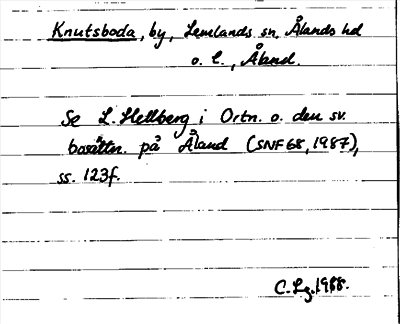 Knutsboda, by, Lemlands sn, Ålands hd
o. l., Åland.
Se L. Hellberg i Ortn. o. den sv.
bosättn. på Åland (SNF 68, 1987),
ss. 123f.
C. Lg. 1988.